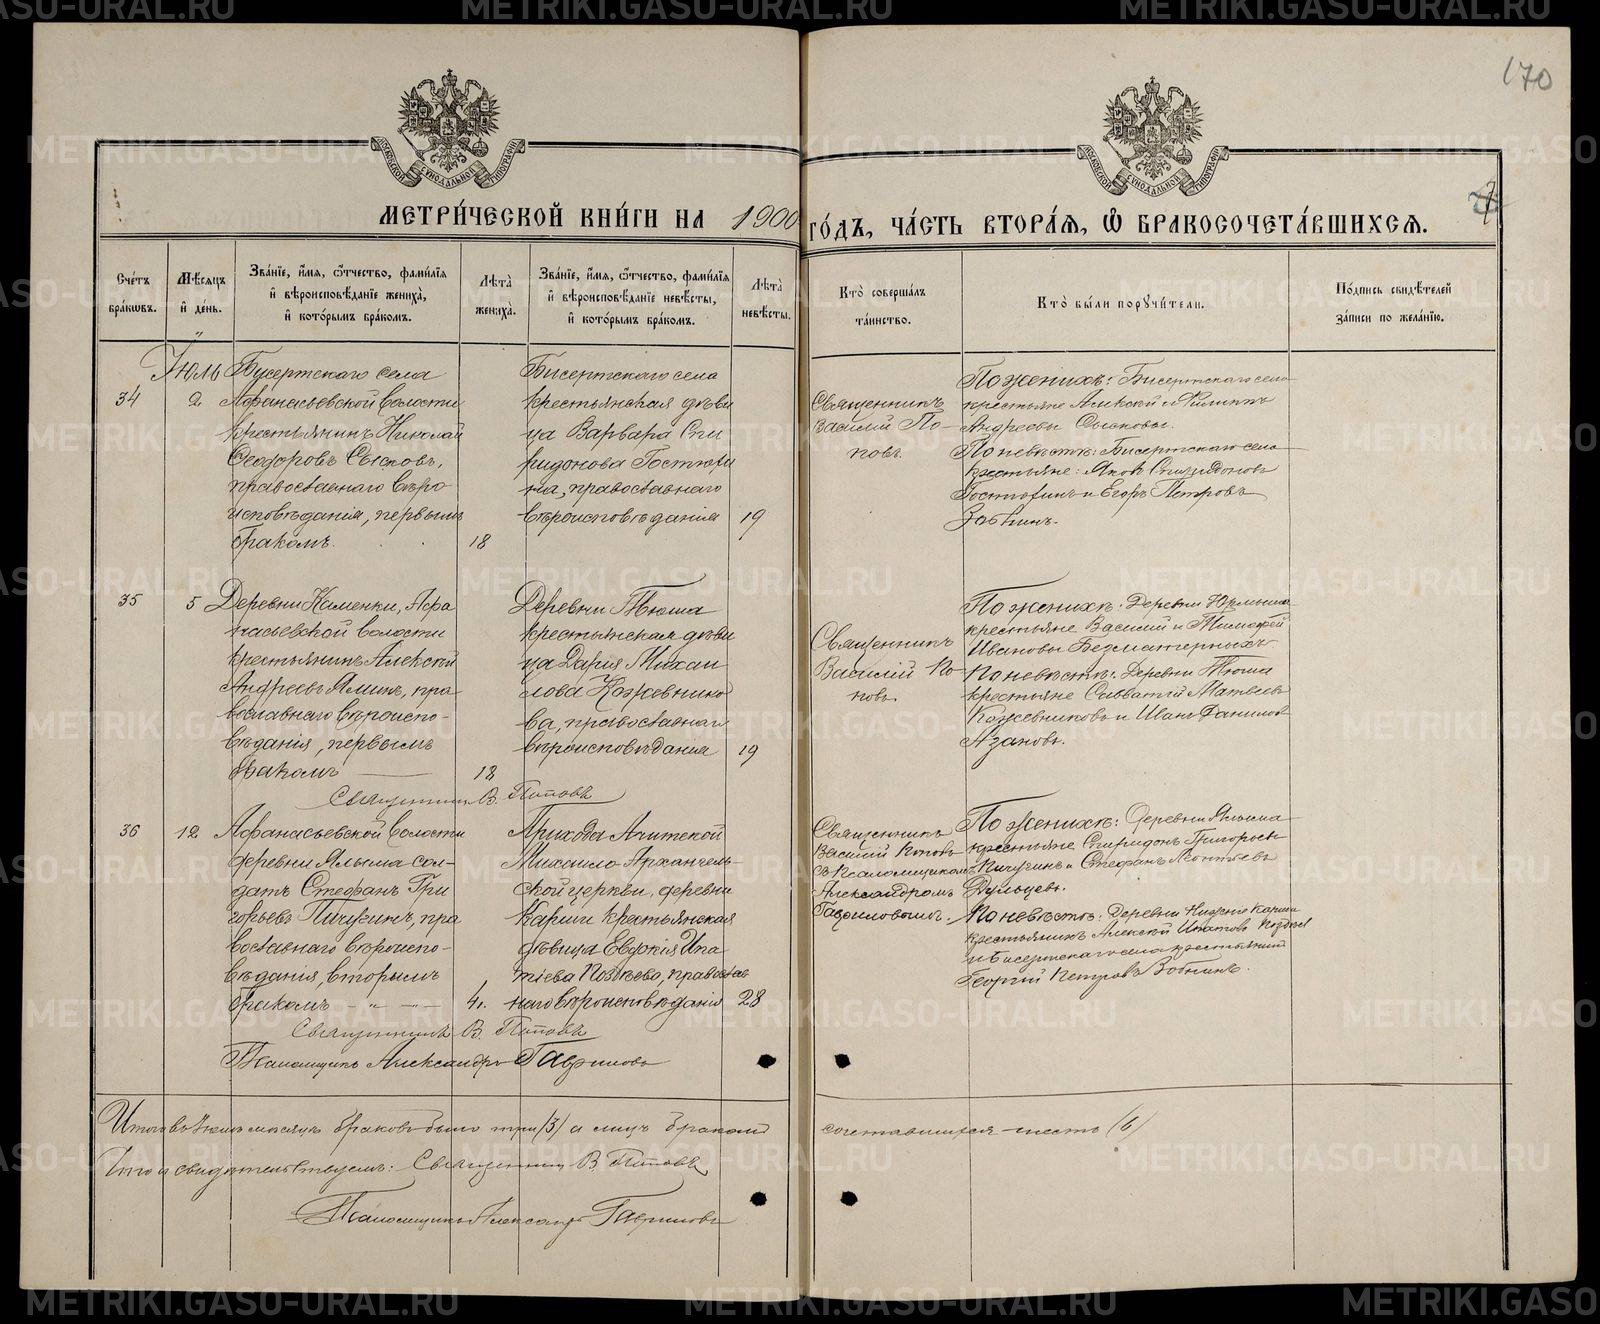 170
МОСКОВСКОЙ СѴНОДАЛЬНОЙ ТИПОГРАФІИ
МОСКОВСКОЙ СѴНОДАЛЬНОЙ ТИПОГРАФІИ
МЕТРИ́ЧЕСКОЙ КНИ́ГИ НА 1900 ГО́ДЪ, ЧА́СТЬ ВТОРА́Я, Ѡ БРАКОСОЧЕТА́ВШИХСЯ.
Сче́тъ бра́кѡвъ.
Мѣ́сяцъ и҆ де́нь.
Зва́нїе, и҆́мя, ѻ҆́тчество, фами́лїя и҆ вѣроисповѣ́данїе жениха̀, и҆ кото́рымъ бра́комъ.
Лѣ́та жениха̀.
Зва́нїе, и҆́мя, ѻ҆́тчество, фами́лїя и҆ вѣроисповѣ́данїе невѣ́сты, и҆ кото́рымъ бра́комъ.
Лѣ́та невѣ́сты.
Кто̀ соверша́лъ та́инство.
Кто̀ бы́ли порꙋчи́тели.
По́дпись свидѣ́телей за́писи по жела́нїю.
Іюль
34
2
Бисертскаго села
Афанасьевской волости
крестьянинъ Николай
Ѳеодоровъ Сысковъ,
православнаго вѣро
исповѣданія, первымъ
бракомъ.
18
Бисертскаго села
крестьянская дѣви
ца Варвара Спи
ридонова Гостюхи
на, православнаго
вѣроисповѣданія
19
Священникъ
Василій По-
повъ.
По женихѣ: Бисертскаго села
крестьяне Алексѣй и Филиппъ
Андреевы Сысковы.
По невѣстѣ: Бисертскаго села
крестьяне: Яковъ Спиридоновъ
Гостюхинъ и Егоръ Петровъ
Зобнинъ.
35
5
Деревни Каменки, Афа
насьевской волости
крестьянинъ Алексѣй
Андреевъ Яминъ, пра
вославнаго вѣроиспо-
вѣданія, первымъ
бракомъ
18
Деревни Тюша
крестьянская дѣви
ца Дарія Михаи
лова Кожевнико
ва, православнаго
вѣроисповѣданія
19
Священникъ
Василій По
повъ.
По женихѣ: Деревни
крестьяне Василій и Тимофей
Ивановы Безматерныхъ
По невѣстѣ: Деревни Тюша
крестьяне Савватій Матвѣевъ
Кожевниковъ и Иванъ Даниловъ
Азановъ.
Священникъ В. Поповъ
36
12
Афанасьевской волости
деревни Ялыма сол-
датъ Стефанъ Гри
горьевъ Пичугинъ, пра
вославнаго вѣроиспо-
вѣданія, вторымъ
бракомъ
41.
Прихода Ачитской
Михаило-Архангель-
ской церкви, деревни
Карши крестьянская
дѣвица Евдокія Ипа
тіева Поздѣева, православ
наго вѣроисповѣданія
28
Священникъ
Василій Поповъ
съ псаломщикомъ
Александромъ
Гавриловымъ.
По женихѣ: деревни Ялыма
крестьяне Спиридонъ Григорьевъ
Пичугинъ и Стефанъ Леонтьевъ
Дульцевъ.
По невѣстѣ: Деревни Нижніе Карши
крестьянинъ Алексѣй Ипатовъ Поздѣев
и Бисертскаго села крестьянинъ
Георгій Петровъ Зобнинъ.
Священникъ В. Поповъ
Псаломщикъ Александръ Гавриловъ
Итого въ Іюлѣ мѣсяцѣ браковъ было три /3/ а лицъ бракомъ сочетавшихся шесть /6/
Что и свидѣтельствуемъ: Священникъ В. Поповъ
Псаломщикъ Александръ Гавриловъ
METRIKI.GASO-URAL.RU